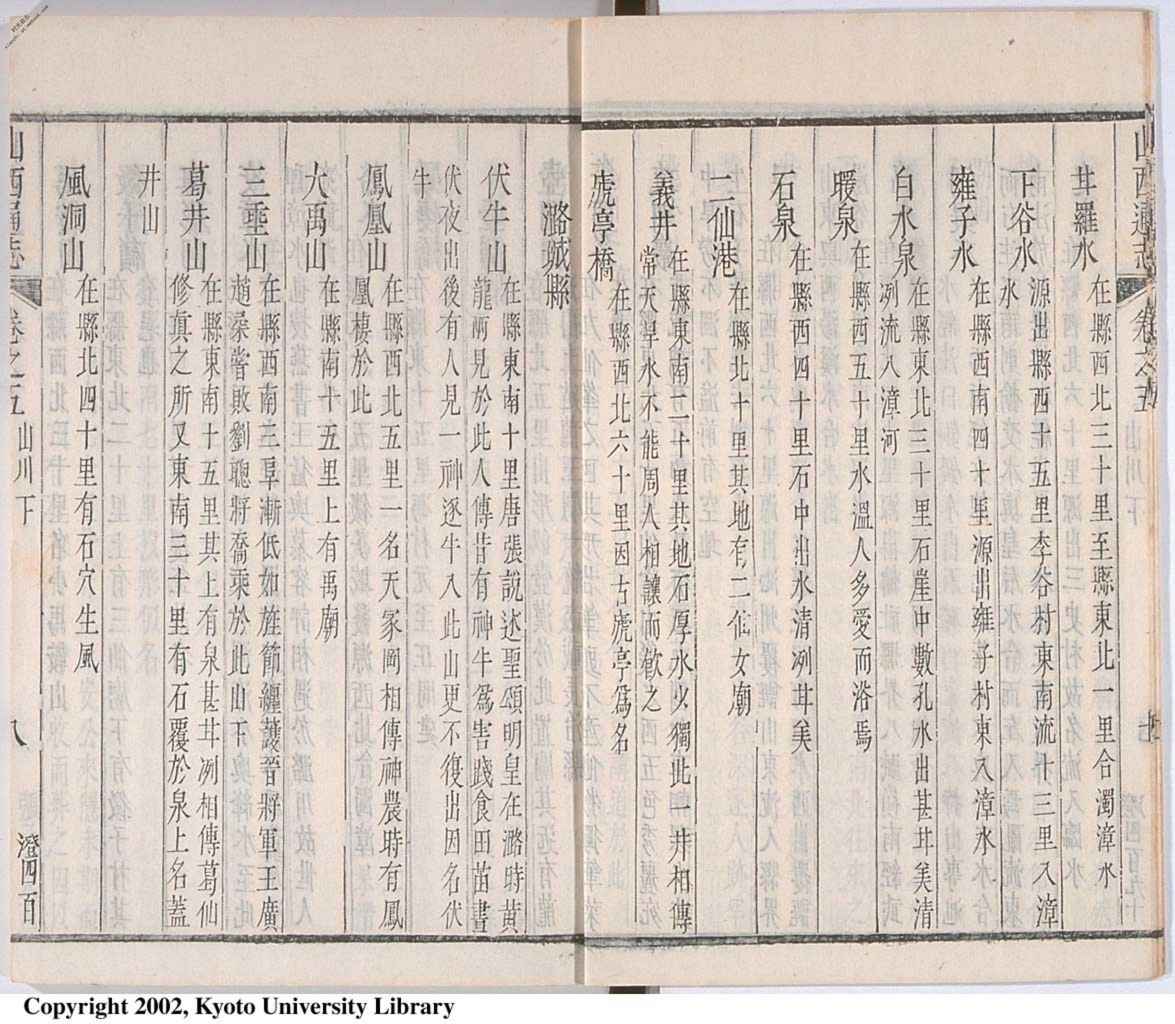 山西通志 卷之五 山川下 七
甘羅水 在縣西北三十里至縣東北一里合濁漳水
下谷水 源出縣西十五里李谷村東南流十三里入漳
水
雍子水 在縣西南四十里源出雍子村東入漳水
白水泉 在縣東北三十里石崖中數孔水出甚甘美清
冽流入漳河
暖泉 在縣西五十里水溫人多愛而浴焉
石泉 在縣西四十里石中出水清冽甘美
二仙港 在縣北十里其地有二仙女廟
義井 在縣東南二十里其地石厚水少獨此一井相傳
常天旱水不能周人相讓而飲之
虒亭橋 在縣西北六十里因古虒亭爲名
潞城縣
伏牛山 在縣東南十里唐張說述聖頌明皇在潞時黃
龍兩見於此人傳昔有神牛爲害踐食田苗晝
伏夜出後有人見一神逐牛入此山更不復出因名伏
牛
鳳凰山 在縣西北五里一名天冢岡相傳神農時有鳳
凰棲於此
大禹山 在縣南十五里上有禹廟
三垂山 在縣西南三阜漸低如旌節纏䕶晉將軍王廣
趙染嘗敗劉聰將喬乘於此山下
葛井山 在縣東南十五里其上有泉甚甘冽相傳葛仙
修真之所又東南三十里有石覆於泉上名蓋
井山
風洞山 在縣北四十里有石穴生風
山西通志 卷之五 山川下 八 澄四百
Copyright 2002, Kyoto University Library